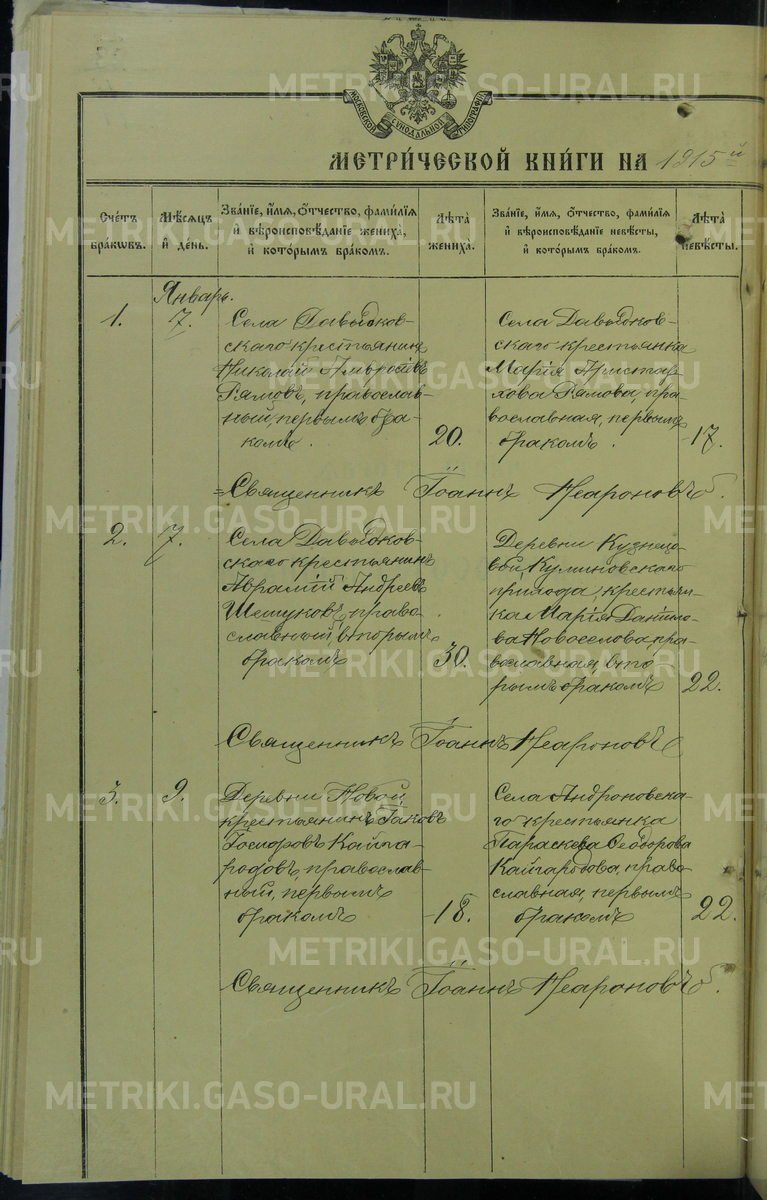 МОСКОВСКОЙ СѴНОДАЛЬНОЙ ТИПОГРАФІИ
МЕТРИ́ЧЕСКОЙ КНИ́ГИ НА 1915й
Счéтъ бра́кѡвъ.
Мѣ́сѧцъ и҆ де́нь.
Зва́нїе, и҆́мѧ, ѻ҆́тчество, фами́лїѧ и҆ вѣроисповѣ́данїе жениха̀, и҆ кото́рымъ бра́комъ.
Лѣ́та жениха̀.
Зва́нїе, и҆́мѧ, ѻ҆́тчество, фами́лїѧ и҆ вѣроисповѣ́данїе невѣ́сты, и҆ кото́рымъ бра́комъ.
Лѣ́та невѣ́сты.
Январь.
1.
7.
Села Давыдков-
скаго крестьянинъ
Николай Амвросіевъ
Рямовъ, православ-
ный, первымъ бра-
комъ.
20.
Села Давыдков-
скаго крестьянка
Марія Аристар-
хова Рямова, пра-
вославная, первымъ
бракомъ.
17.
Священникъ Іоаннъ
2.
7.
Села Давыдков-
скаго крестьянинъ
Аврамій Андреевъ
Шешуковъ, право-
славный, вторымъ
бракомъ
30.
Деревни Кузнецо-
вой,
прихода, крестьян-
ка Марія Данило-
ва Новоселова, пра-
вославная, вто-
рымъ бракомъ
22.
Священникъ Іоаннъ
3.
9.
Деревни Новой,
крестьянинъ Іаковъ
Кайга-
родовъ, православ-
ный, первымъ
бракомъ
18.
Села Андроновска-
го крестьянка
Параскева Ѳеодорова
Кайгородова, право-
славная, первымъ
бракомъ
22.
Священникъ Іоаннъ
METRIKI.GASO-URAL.RU